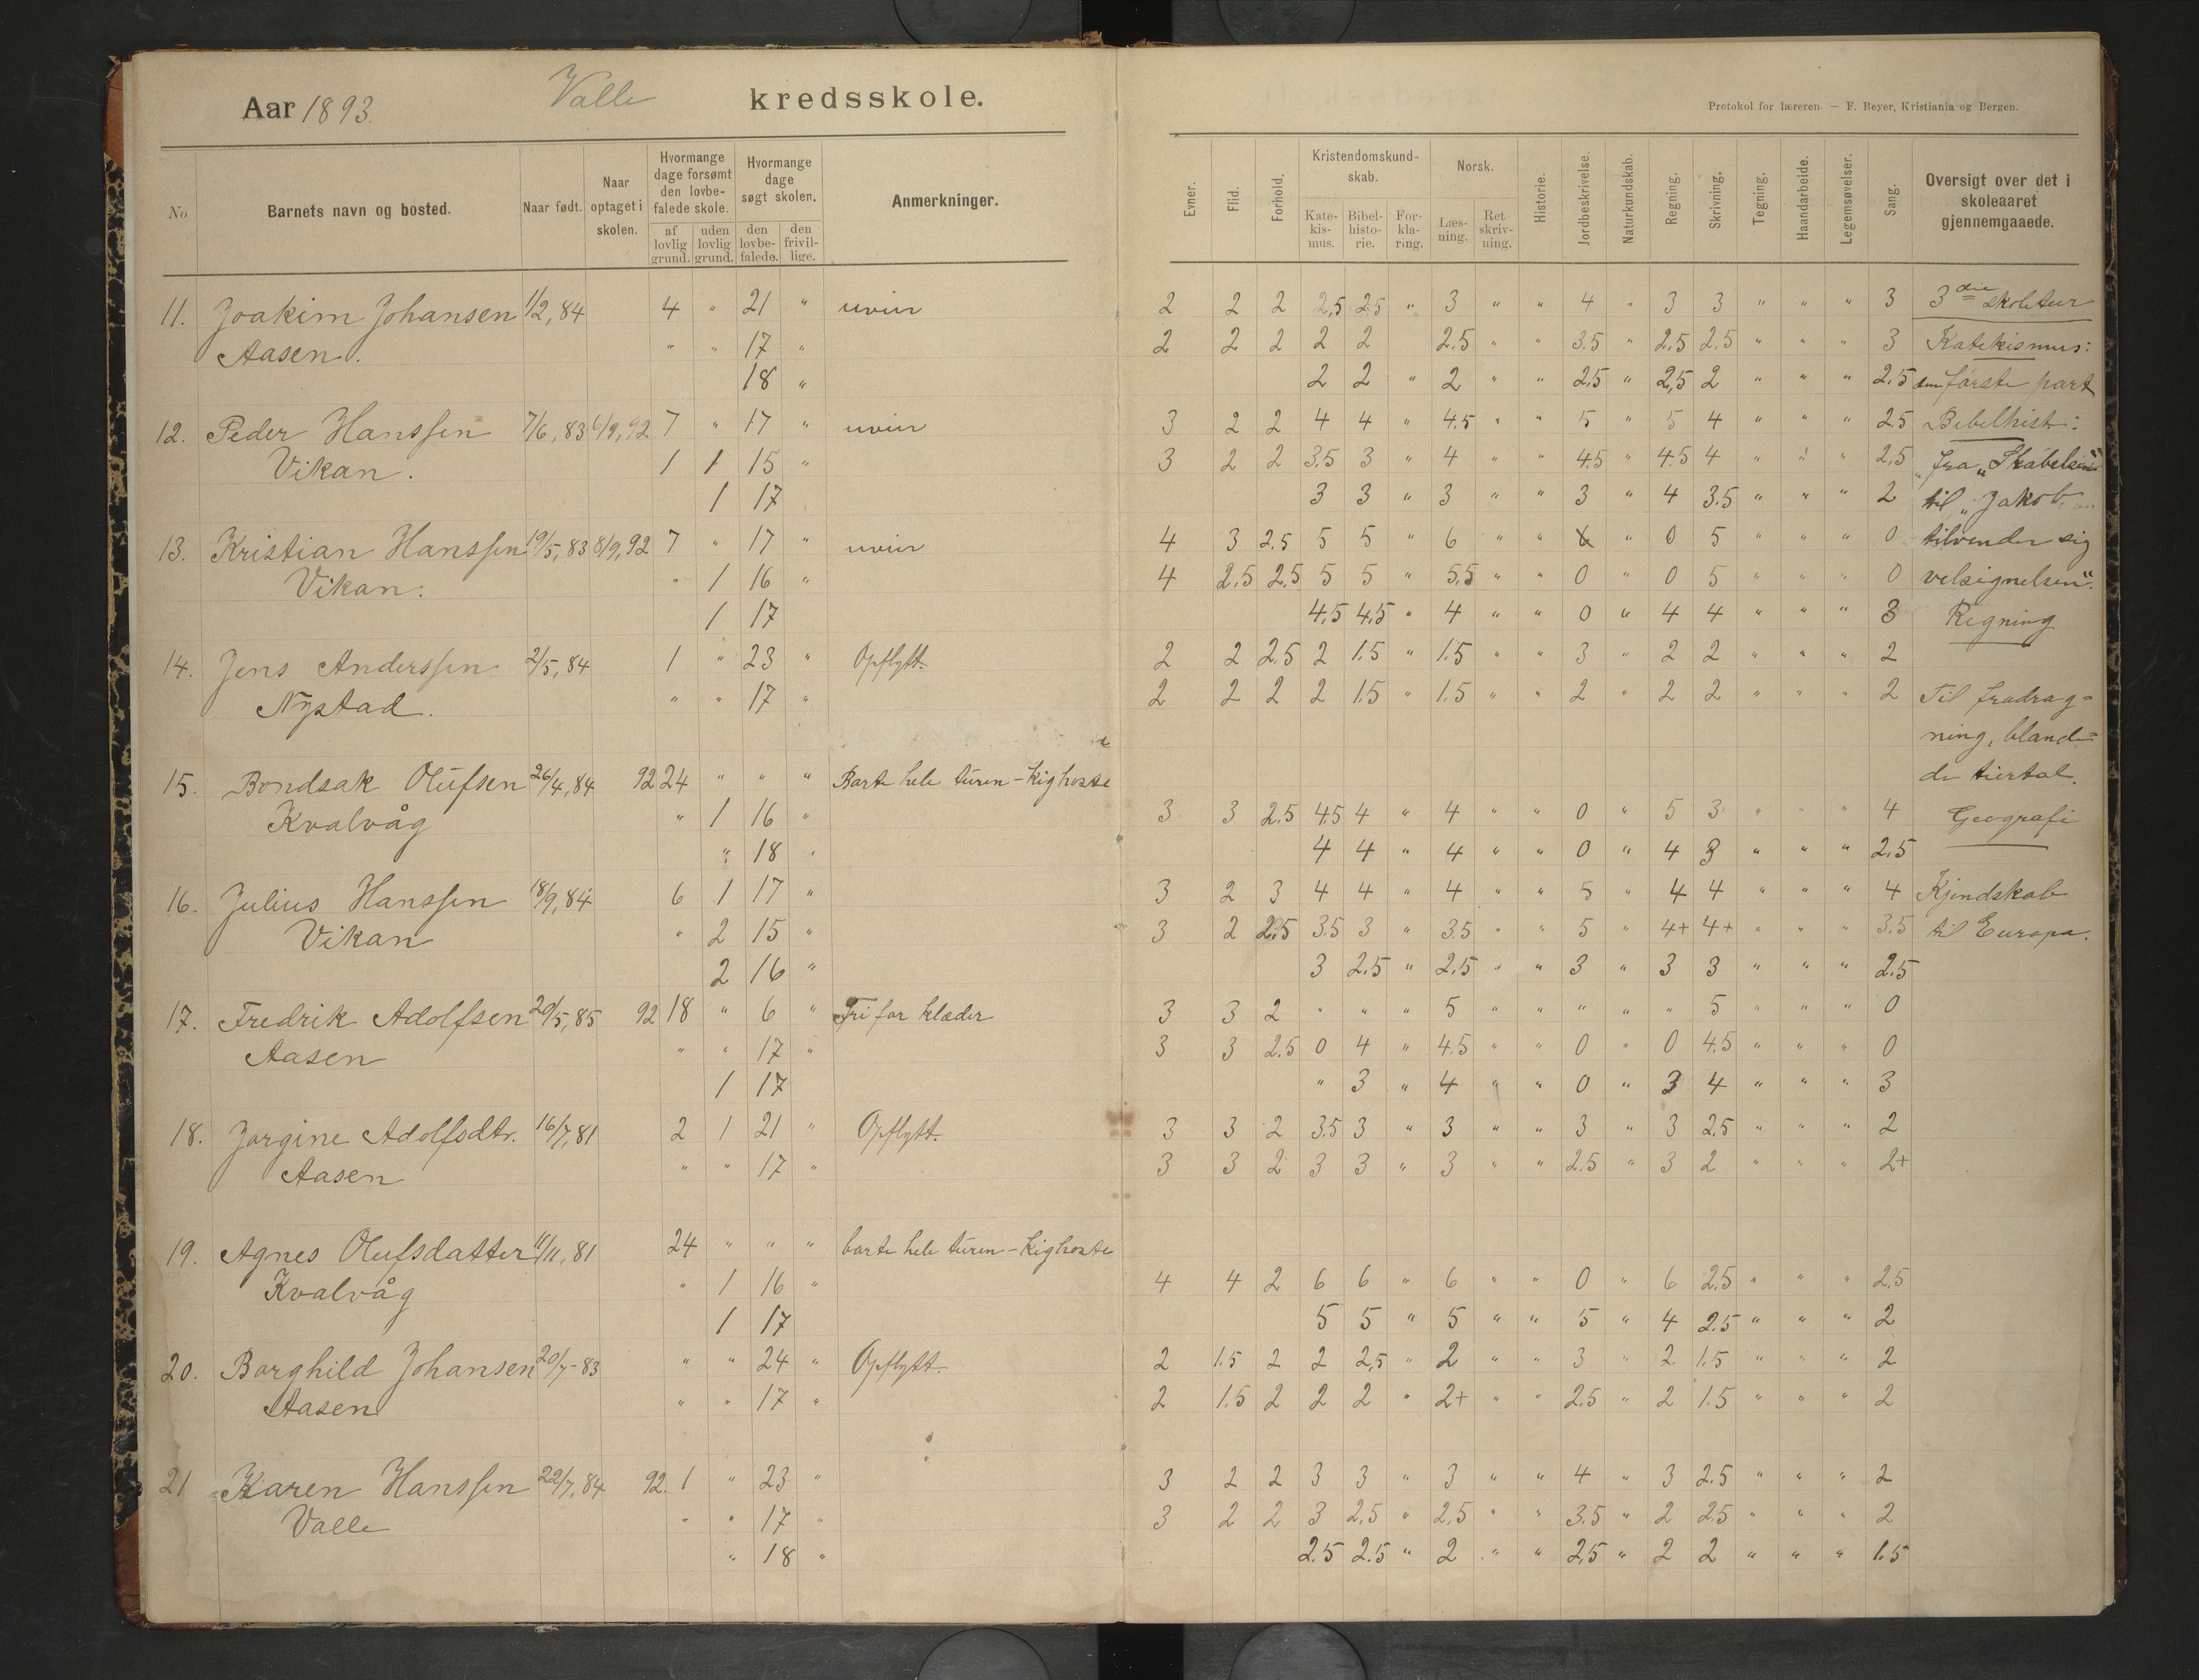 Aar 1893 Valle kredsskole.
Protokol for læreren. — F. Beyer, Kristiania og Bergen.
No Barnets navn og bosted. Naar født. Naar optaget i skolen. Hvormange dage forsømt den lovbefalede skole. af lovlig grund. uden lovlig grund. Hvormange dage søgt skolen. den lovbefalede. den frivillige. Anmerkninger. Evner. Flid. Forhold. Kristendomskundskab. Katekismus. Bibelhistorie. Forklaring. Norsk. Læsning. Retskrivning. Historie. Jordbeskrivelse. Naturkundskab. Regning. Skrivning. Tegning. Haandarbeide. Legemsøvelser. Sang. Oversigt over det i skoleaaret gjennemgaaede.
11. Joakim Johansen 1/2, 84 4 " 21 " uveir 2 2 2 2,5 2,5 " 3 " " 4 " 3 3 " " " 3 3die skoletur
Aasen. " " 17 " 2 2 2 2 2 2.5 " " 3.5 " 2,5 2.5 " " " 3 Katekismus:
18 " 2 2 " 2 " " 2,5 " 2,5 2 " " " 2.5 første part
12. Peder Hanssen 7/6, 83 6/9, 92 7 " 17 " uveir 3 2 2 4 4 " 4.5 " " 5 " 5 4 " " " 2.5 Bibelhist.:
Vikan. 1 1 15 " 3 2 2 3.5 3 " 4 " " 4.5 " 4.5 4 " " " 2,5 fra „Skabelsen"
1 17 3 3 " 3 " " 3 " 4 3.5 " " " 2 til „Jakob
13. Kristian Hanssen 19/5, 83 8/9, 92 7 " 17 " uveir 4 3 2.5 5 5 " 6 " " 6 " 0 5 " " " 0 tilvender sig
Vikan. " 1 16 " 4 2.5 2.5 5 5 " 5,5 " " 0 " 0 5 " " " 0 velsignelsen".
1 17 4.5 4,5 " 4 " " 0 " 4 4 " " " 3 Regning
14. Jens Anderssen 2/5, 84 1 " 23 " Opflytt. 2 2 2.5 2 1.5 " 1.5 " " 3 " 2 2 " " " 2
Nystad. " " 17 " 2 2 2 2 1.5 " 1.5 " " 2 " 2 2 " " " 2 Til fradrag=
ning, bland=
15. Bondsak Olufsen 26/4, 84 92 24 " " " Borte hele turen - kighoste de tiertal.
Kvalvåg " 1 16 " 3 3 2.5 4.5 4 " 4 " " 0 " 5 3 " " " 4 Geografi
" 18 " 4 4 " 4 " " 0 " 4 3 " " " 2.5
16. Julius Hanssen 18/9, 84 6 1 17 " 3 2 3 4 4 " 4 " " 5 " 4 4 " " " 4 Kjendskab
Vikan " 2 15 " 3 2 2,5 3.5 3 " 3.5 " " 5 " 4+ 4+ " " " 3.5 til Europa.
2 16 " 3 2.5 " 2.5 " " 3 " 3 3 " " " 2.5
17. Fredrik Adolfsen 20/5, 85 92 18 " 6 " Fri for klæder 3 3 2 " " " 5 " " " " " 5 " " " 0
Aasen " " 17 " 3 3 2.5 0 4 " 4.5 " " 0 " 0 4.5 " " " 0
1 17 " 3 " 4 " " 0 " 3 4 " " " 3
18. Jorgine Adolfsdtr. 16/7, 81 2 1 21 " Opflytt. 3 3 2 3.5 3 " 3 " " 3 " 3 2.5 " " " 2
Aasen " " 17 " 3 3 2 3 3 " 3 " " 2.5 " 3 2 " " " 2+
19. Agnes Olufsdatter 11/11, 81 24 " " " borte hele turen - kighoste
Kvalvåg " 1 16 " 4 4 2 6 6 " 6 " " 0 " 6 2.5 " " " 2.5
1 17 5 5 " 5 " " 5 " 4 2.5 " " " 2
20. Borghild Johansen 20/7-83 " " 24 " Opflytt. 2 1.5 2 2 2,5 " 2 " " 3 " 2 1.5 " " " 2
Aasen " " 17 " 2 1.5 2 2 2 " 2+ " " 2.5 " 2 1.5 " " " 2
21 Karen Hanssen 22/7, 84 92. 1 " 23 " 3 2 2 3 3 " 3 " " 4 " 3 2.5 " " " 2
Valle " " 17 " 3 2 2 3 2,5 " 2,5 " " 3.5 " 2 2.5 " " " 2
" 18 " 2.5 2.5 " 2 " " 2,5 " 2 2 " " " 1.5